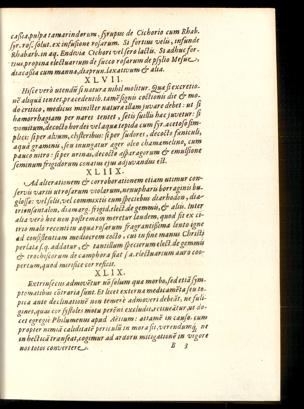 cassia, pulpa tamarindorum, syrupus de Cichorio cum Rhab.
syr. ros. solut. ex infusione rosarum. Si fortius velis, infunde
Rhabarb. in aq. Endivia Cichori vel sero lactis. Si adhuc for-
tius, propina electuarium de succo rosarum de psylio Mesuę,
diacassia cum manna, diaprun. laxativum & alia.
XLVII.
Hisce verò utendũ si natura nihil molitur. Quæ si excretio-
nẽ aliquã tentet, præcedentib. tamẽ signis coctionis die & mo-
do critico, medicus minister natura illam juvare debet: ut si
hæmorrhagiam per nares tentet, setis sustili hac juvetur: si
vomitum, decocto hordei vel aqua tepida cum syr. acetoso sim-
plici: si per alvum, clysteribus: si per sudores, decocto fœniculi,
aquæ graminis, seu inungatur ager oleo chamæmelino, cum
pauco nitro: si per urinas, decocto asparagorum & emulsione
seminum frigidorum conatus ejus adjuvandus est.
XLIIX.
Ad alterationem & corroborationem etiam utimur con-
servis variis ut rosarum violarum, nenupharis borraginis bu-
glossæ: vel solis, vel commixtis cum speciebus diarrhodis, dia-
trionsantalon, diamarg. frigid. elect. de gemmis, & aliis. Inter
alia verò hoc non postremam meretur laudem, quod sit ex ci-
trio malo recenti in aqua rosarum fragrantissima lento igne
ad consistentiam mediocrem cocto, cui in fine manus Christi
perlata s.q. addatur, & tantillum specierum elect. de gemmis
& trochiscorum de camphora fiat s.a. electuarium auro coo-
pertum, quod mirificè cor reficit.
XLIX.
Extrinsecus admovẽtur nõ solum quæ morbo, sed etiã sym-
ptomatibus cõtraria sunt. Et licet externa medicamẽta seu to-
pica ante declinationẽ non temerè admoveri debeãt, ne fuli-
gines, quas cor systoles motu per poros excludit retineãtur, ut do-
cet egregiè Philumenus apud Aëtium: attamẽ in causo, cum
propter nimiã caliditatẽ periculũ in mora sit, verendumq́, ne
in hecticã transeat, cogimur ad ardoris mitigationẽ in vigore
nos totos convertere,
B 3